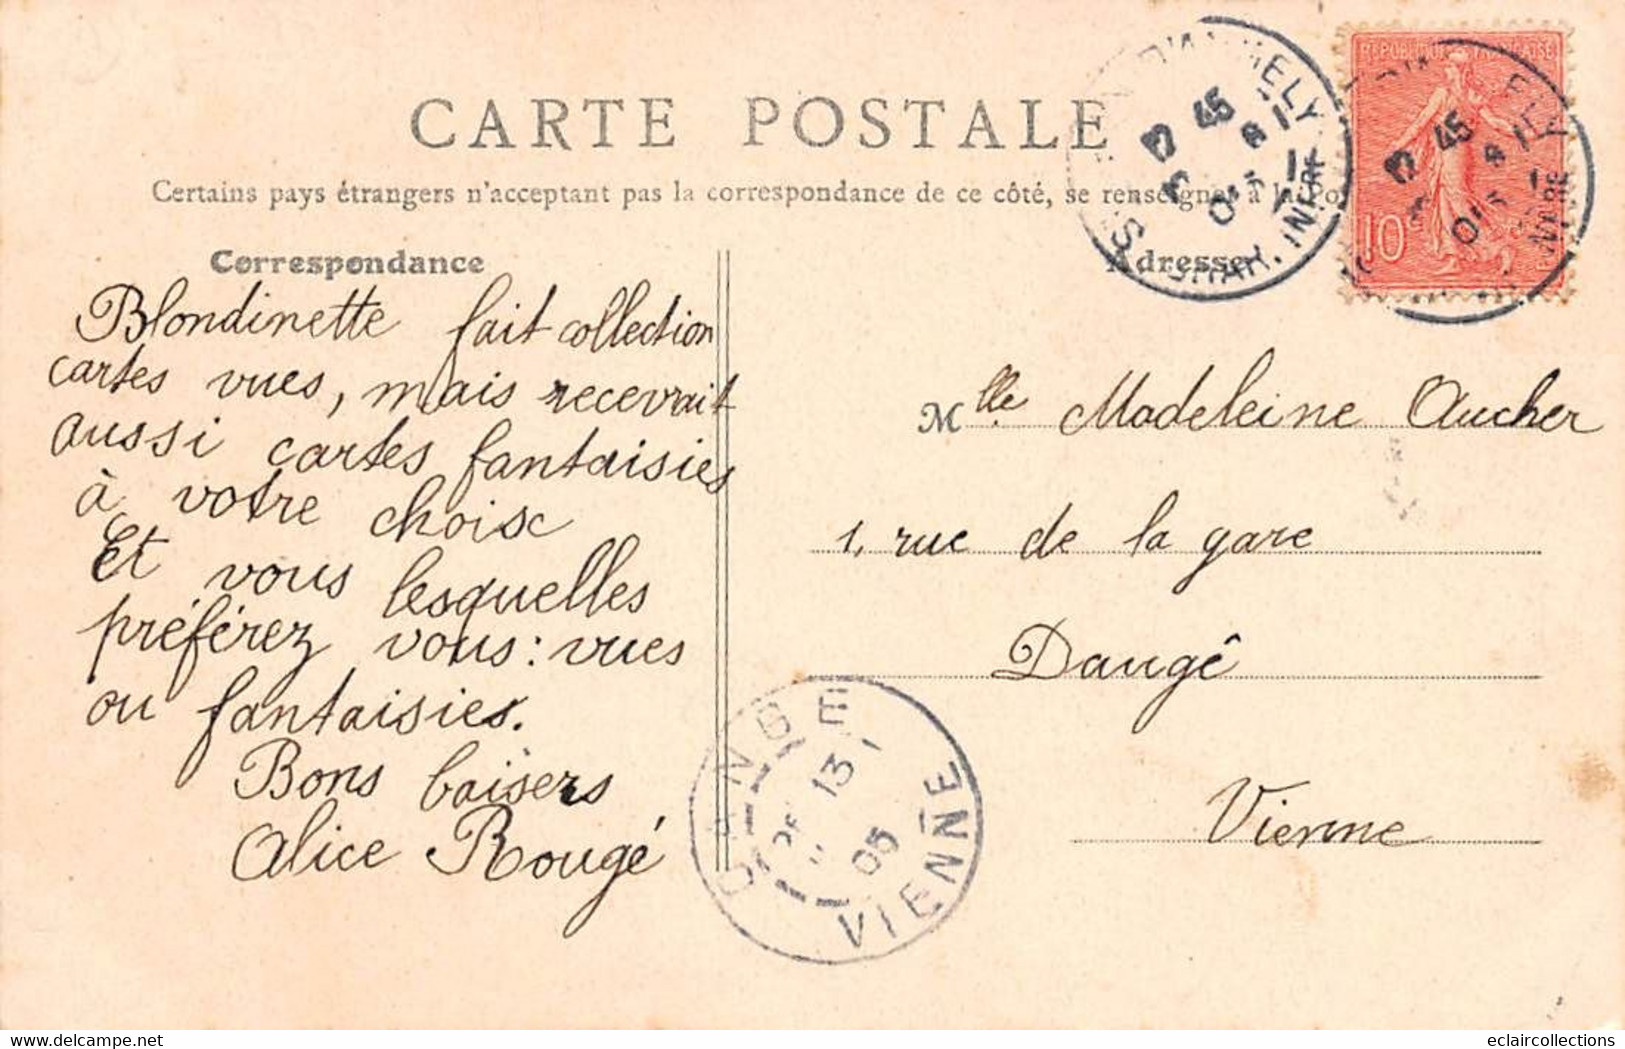 CARTE POSTALE
Certains pays étrangers n'acceptant pas la correspondance de ce côté, se renseigner à la
Correspondance
Blondinette fait collection
cartes vues, mais recevrait
aussi cartes fantaisies
à votre choix
Et vous lesquelles
préférez vous: vues
ou fantaisies.
Bons baisers
Alice Rougé
Adresse
Mlle Madeleine Aucher
1, rue de la gare
Dangé
Vienne
RÉPUBLIQUE FRANÇAISE
10
45
45
DANGE
13
05
VIENNE
eclaircollections